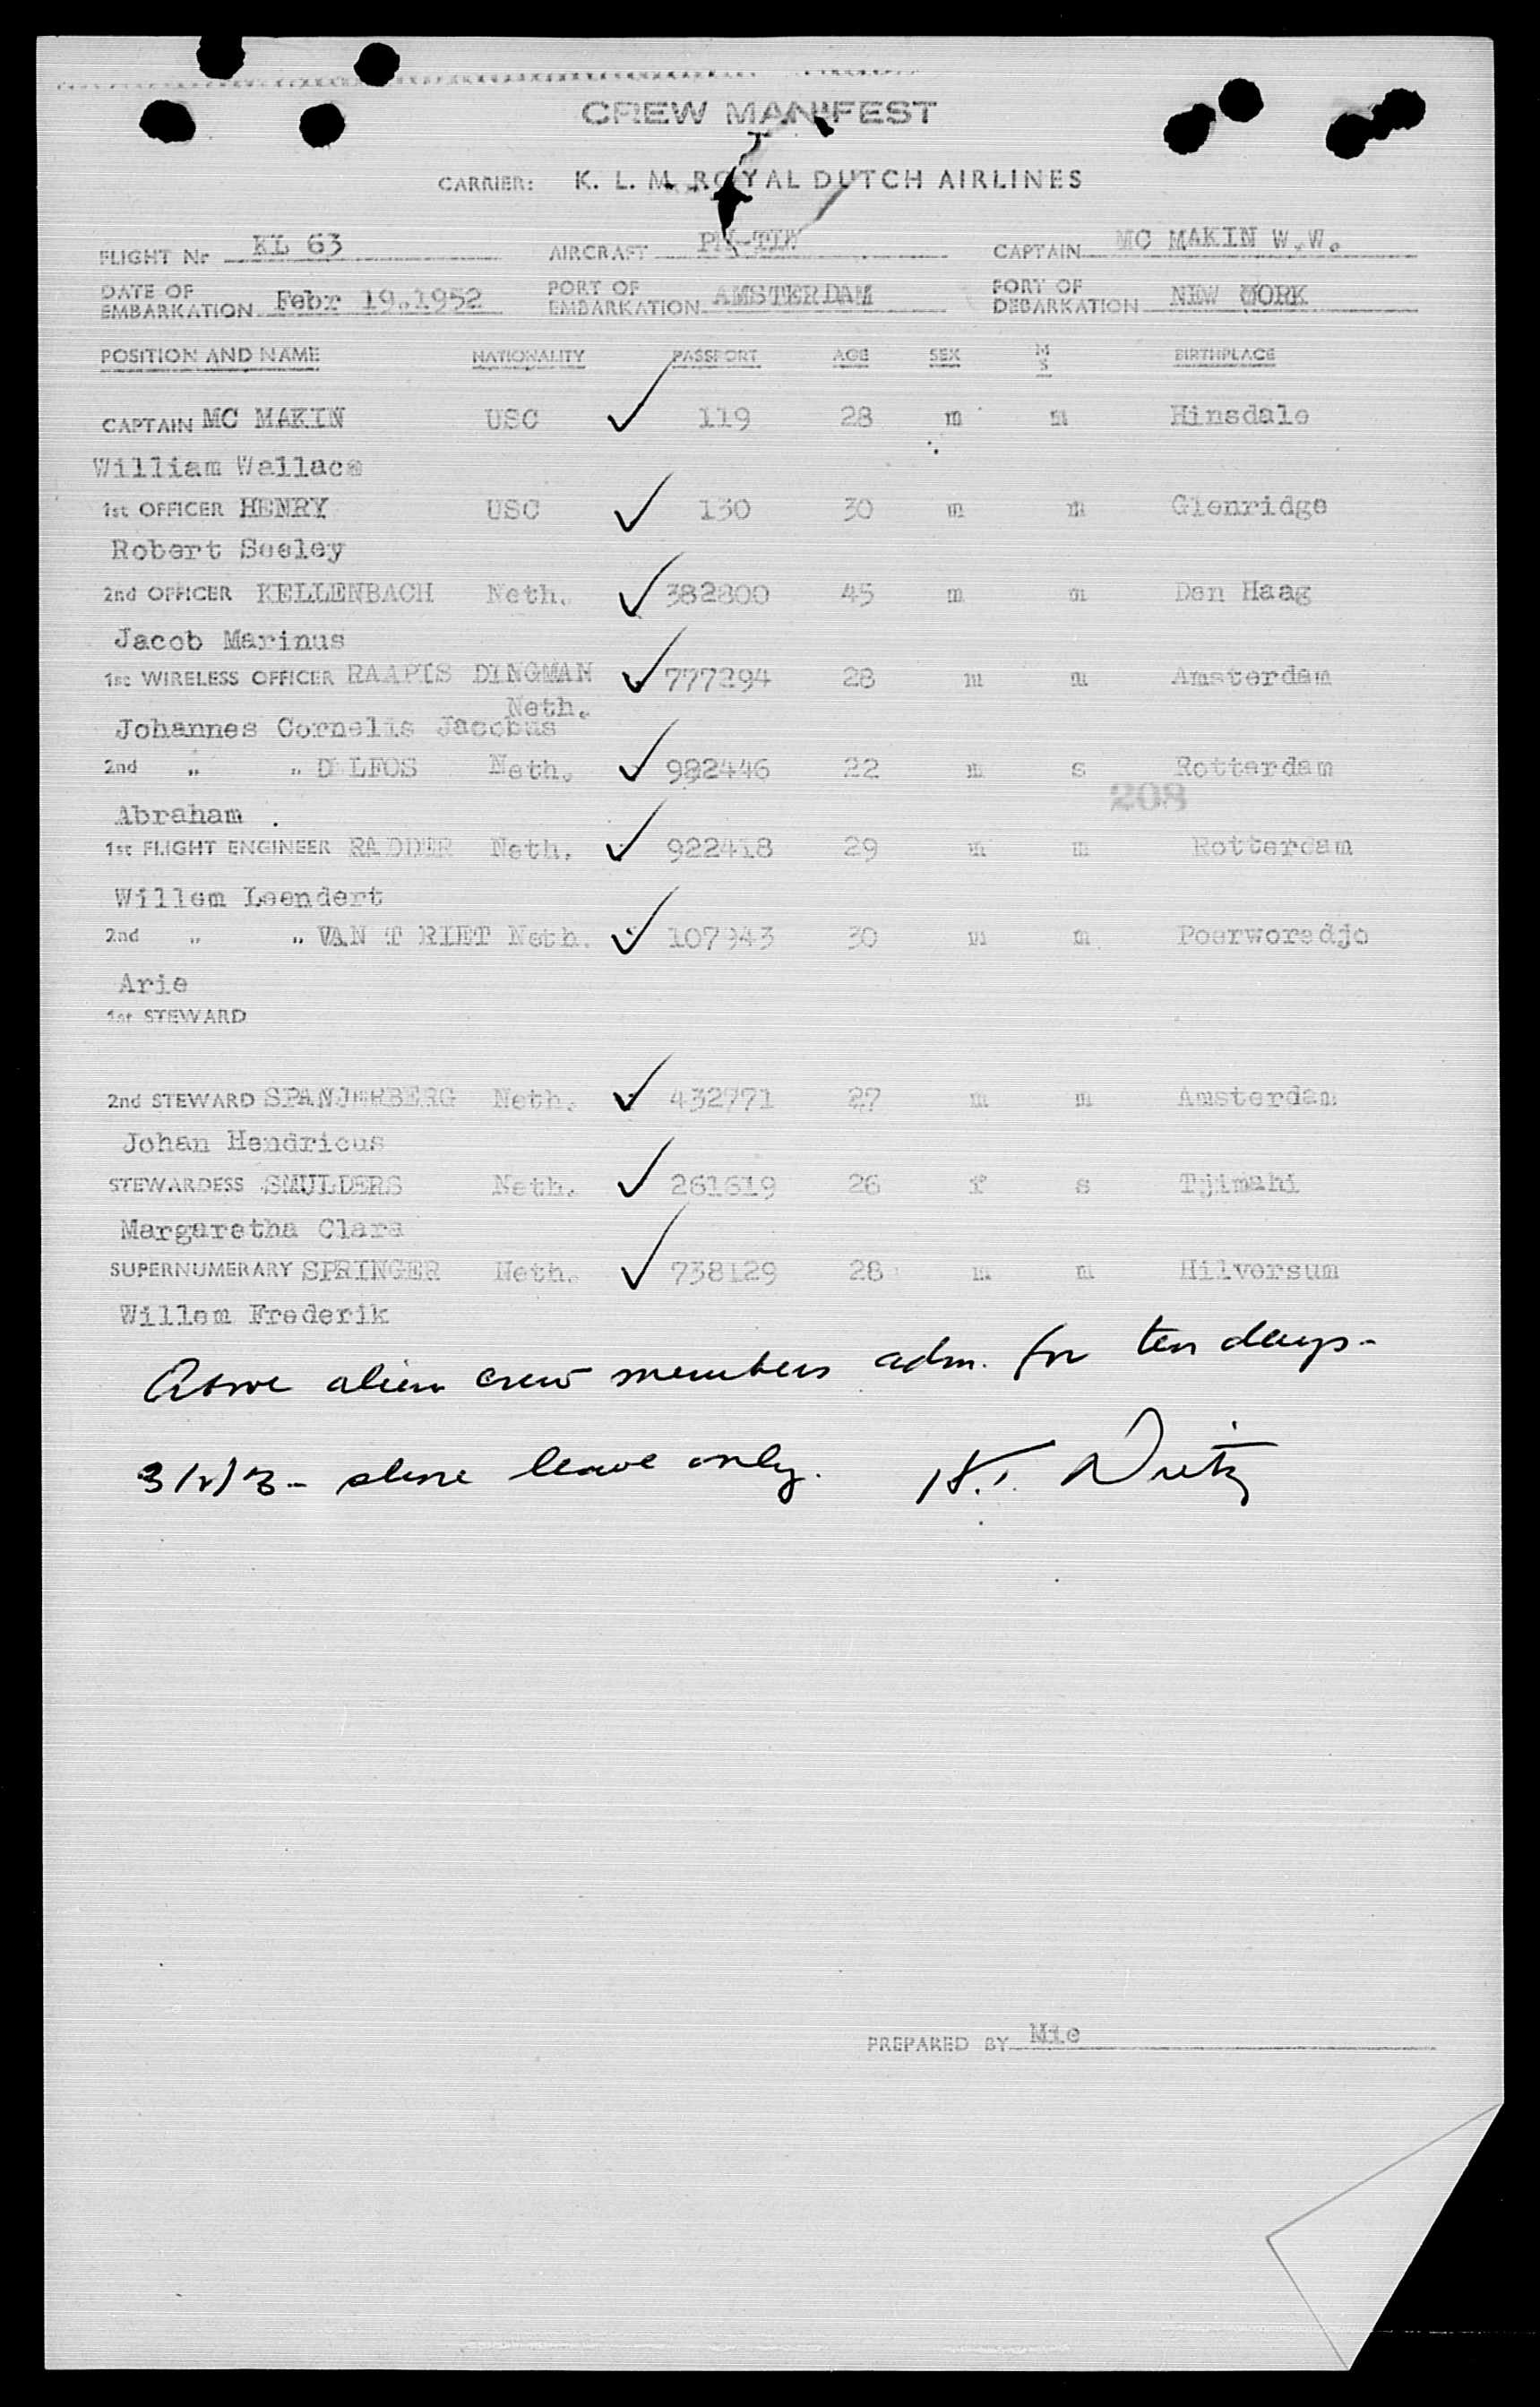 CREW MANIFEST
CARRIER: K. L. M. ROYAL DUTCH AIRLINES
FLIGHT Nr KL 63 AIRCRAFT CAPTAIN MC MAKIN W.W.
DATE OF EMBARKATION Febr 19.1952 PORT OF EMBARKATION AMSTERDAM PORT OF DEBARKATION NEW YORK
POSITION AND NAME NATIONALITY PASSPORT AGE SEX M S BIRTHPLACE
CAPTAIN MC MAKIN USC ✓ 119 28 m m Hinsdale
William Wallace
1st OFFICER HENRY USC ✓ 130 30 m m Glenridge
Robert Seeley
2nd OFFICER KELLENBACH Neth. ✓ 382800 45 m m Den Haag
Jacob Marinus
1st WIRELESS OFFICER RAAPIS DINGMAN ✓ 777294 28 m m Amsterdam
Neth.
Johannes Cornelis Jacobus
2nd " " DELFOS Neth. ✓ 982446 22 m s Rotterdam
208
Abraham .
1st FLIGHT ENGINEER RADDER Neth. ✓ 922418 29 m m Rotterdam
Willem Leendert
2nd " " VAN T RIET Neth. ✓ 107943 30 m m Poerworedjo
Arie
1st STEWARD
2nd STEWARD SPANJERBERG Neth. ✓ 432771 27 m m Amsterdam
Johan Hendricus
STEWARDESS SMULDERS Neth. ✓ 261619 26 f s Tjimahi
Margaretha Clara
SUPERNUMERARY SPRINGER Neth. ✓ 738129 28 m m Hilversum
Willem Frederik
Above alien crew members adm. for ten days-
shore leave only.
PREPARED BY Mie